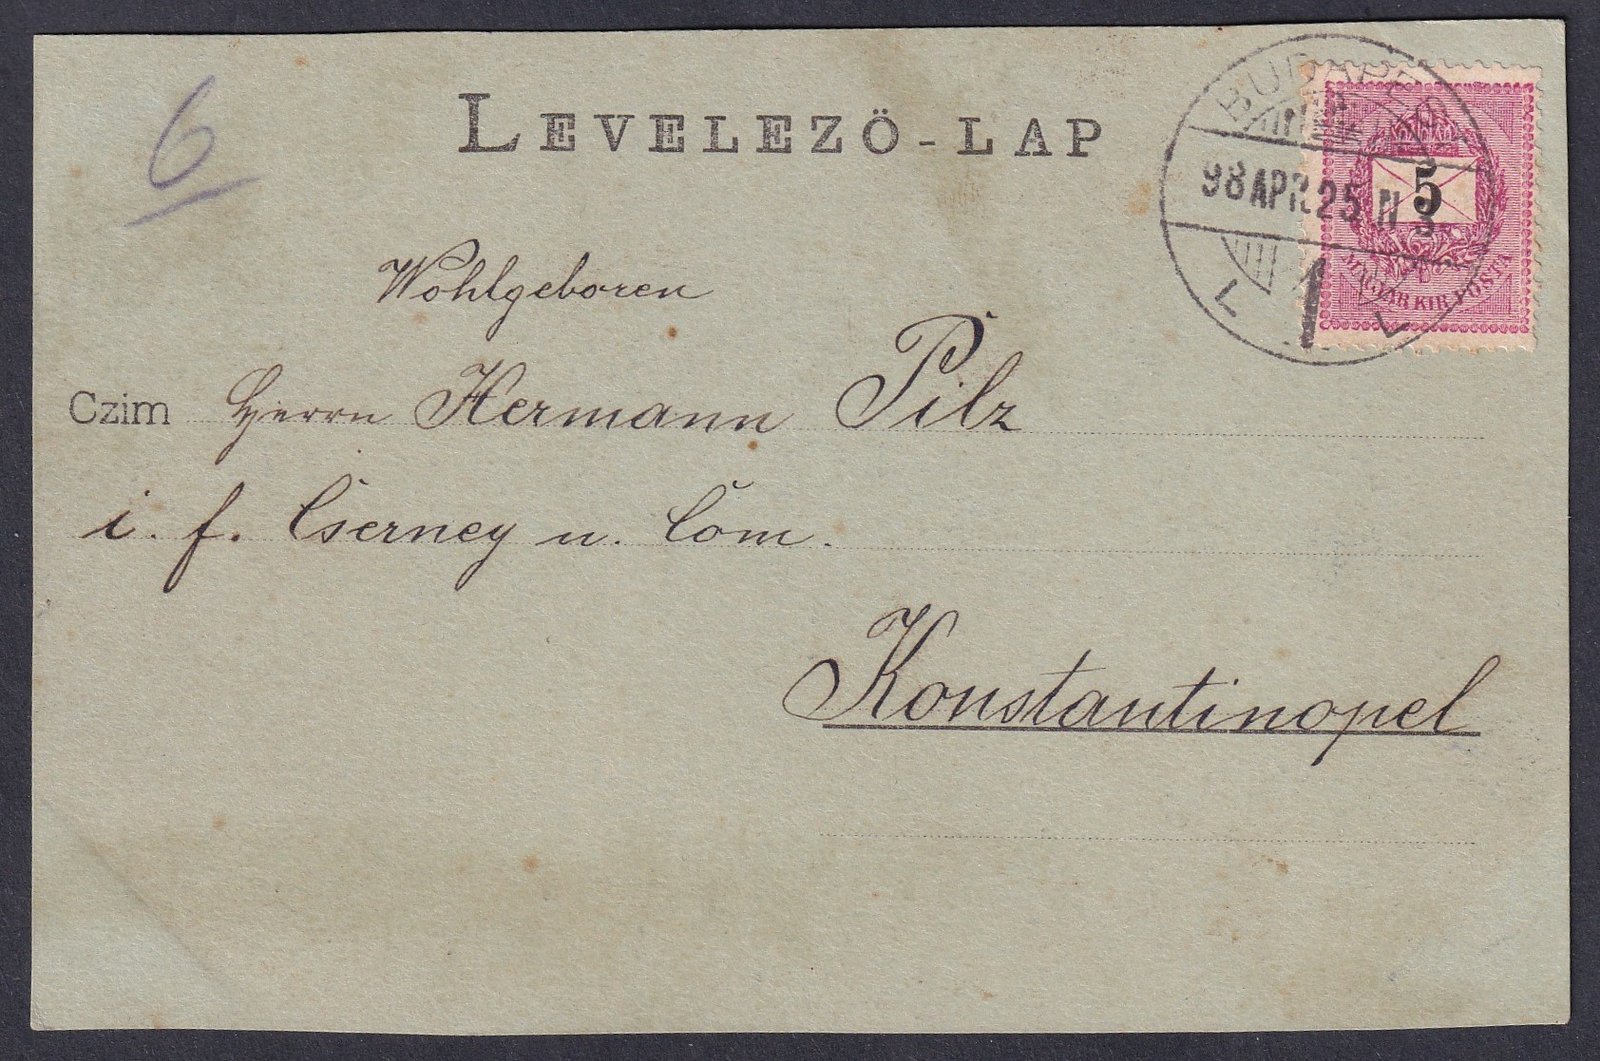 6
LEVELEZŐ-LAP
BUDAPEST
98 APR. 25 N 3
5
MAGYAR KIR. POSTA
Wohlgeboren
Czim Herrn Hermann Pilz
i. f. Cserney u. Com.
Konstantinopel